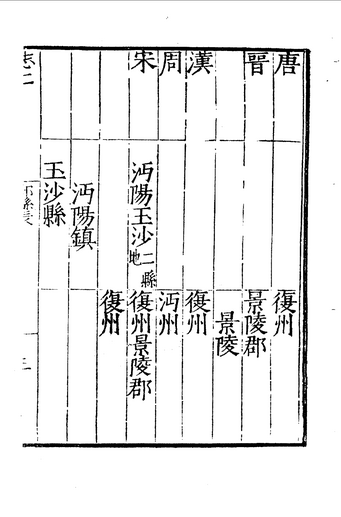 唐 復州
晉 景陵郡
景陵
漢 復州
周 沔州
宋 沔陽玉沙二縣地 復州景陵郡
復州
沔陽鎮
玉沙縣